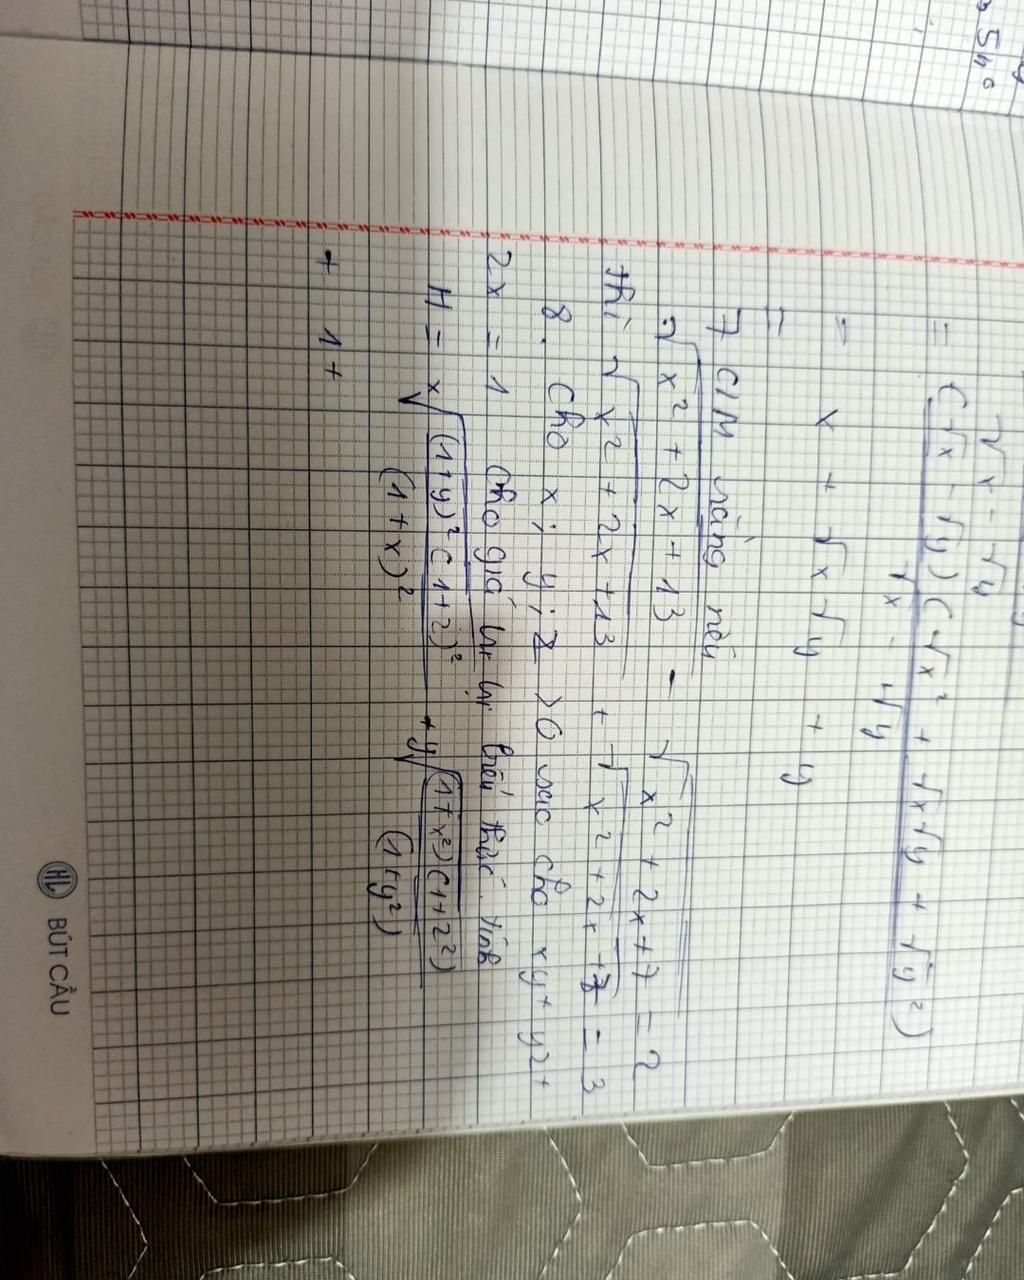 5h
√x - √y
= (√x - √y)(√x² + √x√y + √y²)
√x - √y
= x + √x√y + y
=
7 C/M rằng nếu
√x² + 2x + 13 - √x² + 2x + 7 = 2
thì √x² + 2x + 13 + √x² + 2x + 7 = 3
8. Cho x; y; z > 0 sao cho xy + yz +
zx = 1 Cho giá trị biểu thức. Tính
H = x√(1+y)²(1+z)² + y√(1+x²)(1+z²)
(1+x)² (1+y²)
+ 1 +
HL BÚT CẦU